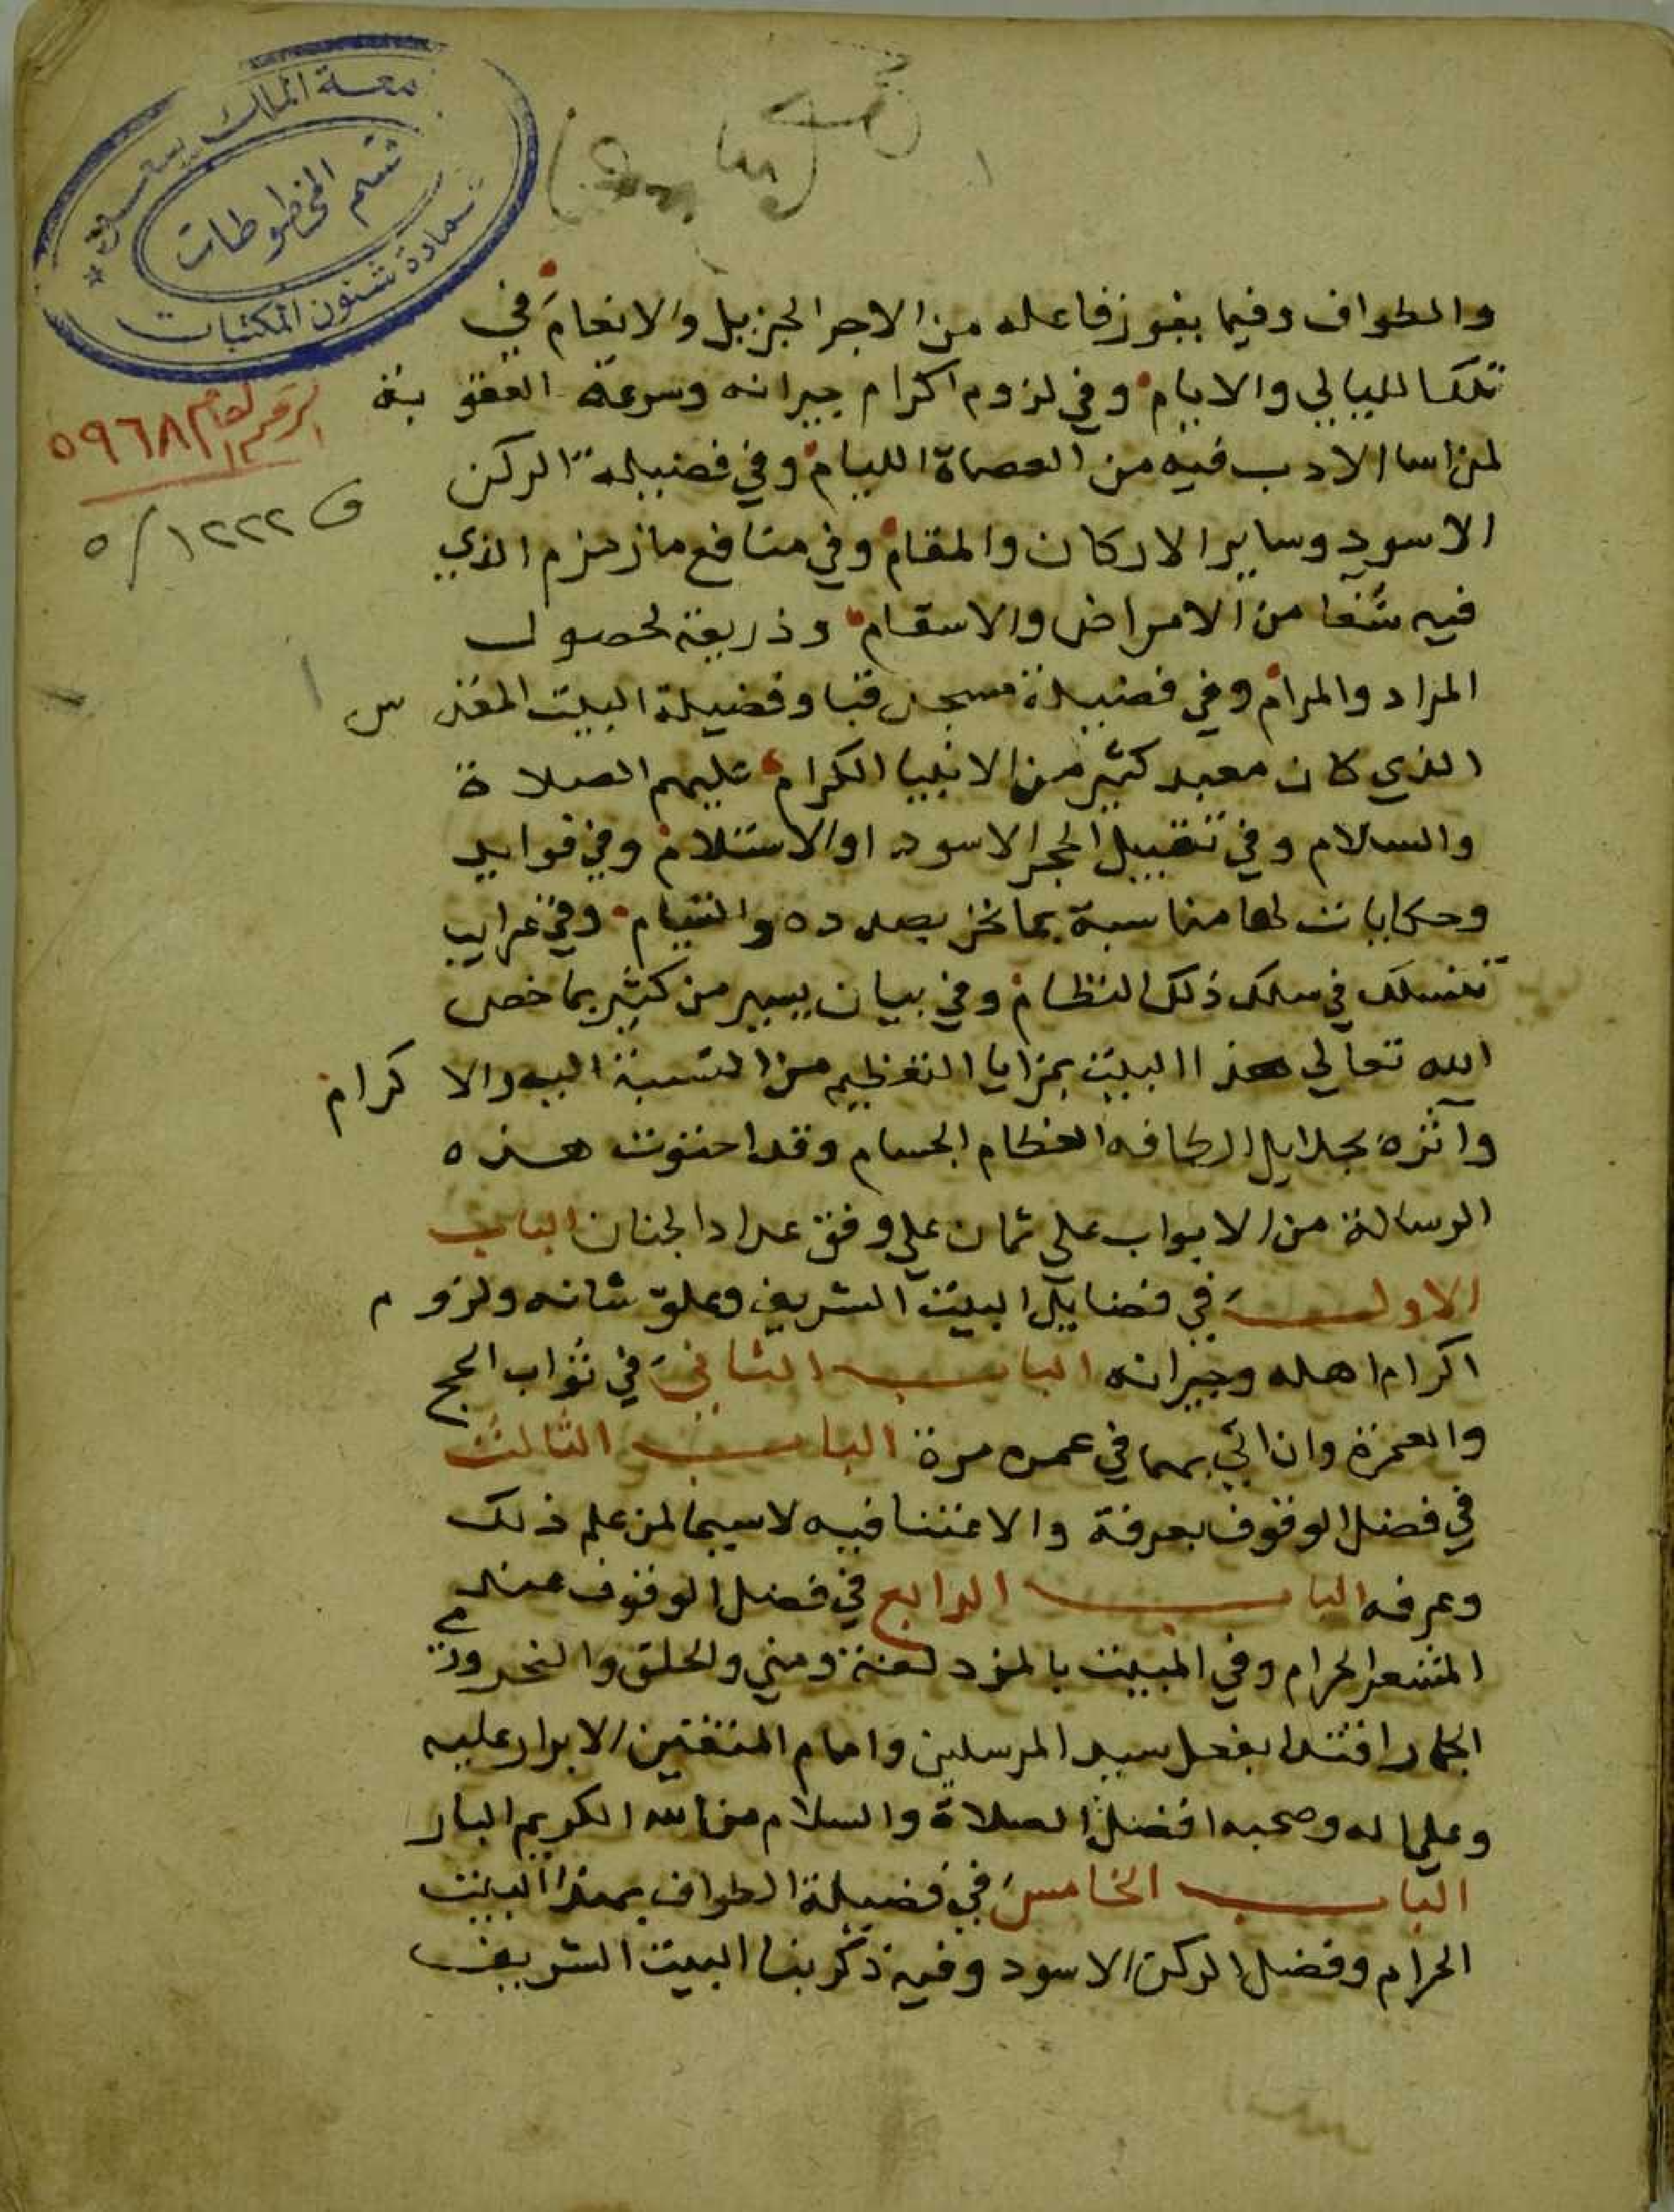 جامعة الملك سعود
قسم المخطوطات
عمادة شئون المكتبات
الرقم العام ٥٩٦٨
ف ١٢٢٢ / ٥
والطواف وفيما يفوز فاعله من الاجر الجزيل والانعام في
تلك الليالي والايام وفي لزوم اكرام جيرانه وسرعة العقوبة
لمن اسا الادب فيه من العصاة الليام وفي فضيلة الركن
الاسود وساير الاركان والمقام وفي منافع ما زمزم الذي
فيه شفا من الامراض والاسقام وذريعة لحصول
المراد والمرام وفي فضيلة مسجد قبا وفضيلة البيت المقدس
الذي كان معبد كثير من الانبيا الكرام عليهم الصلاة
والسلام وفي تقبيل الحجر الاسود او الاستلام وفي فوايد
وحكايات لها مناسبة بما نحن بصدده والتيام وفي غرايب
تنسلك في سلك ذلك النظام وفي بيان يسير من كثير بما خص
الله تعالي هذا البيت بمزايا التعظيم من النسبة اليه والاكرام
وآثره بجلايل الطافه العظام الجسام وقد احتوت هذه
الرسالة من الابواب علي ثمان علي وفق عداد الجنان الباب
الاول في فضايل البيت الشريف وعلو شانه ولزوم
اكرام اهله وجيرانه الباب الثاني في ثواب الحج
والعمرة وان اتي بهما في عمره مرة الباب الثالث
في فضل الوقوف بعرفة والاعتنا فيه لاسيما لمن علم ذلك
وعرفه الباب الرابع في فضل الوقوف عند
المشعر الحرام وفي المبيت بالمزدلفة ومني والحلق والنحر ورمي
الجمار اقتدا بفعل سيد المرسلين وامام المتقين الابرار عليه
وعلي اله وصحبه افضل الصلاة والسلام من الله الكريم البار
الباب الخامس في فضيلة الطواف بهذا البيت
الحرام وفضل الركن الاسود وفيه ذكر بنا البيت الشريف